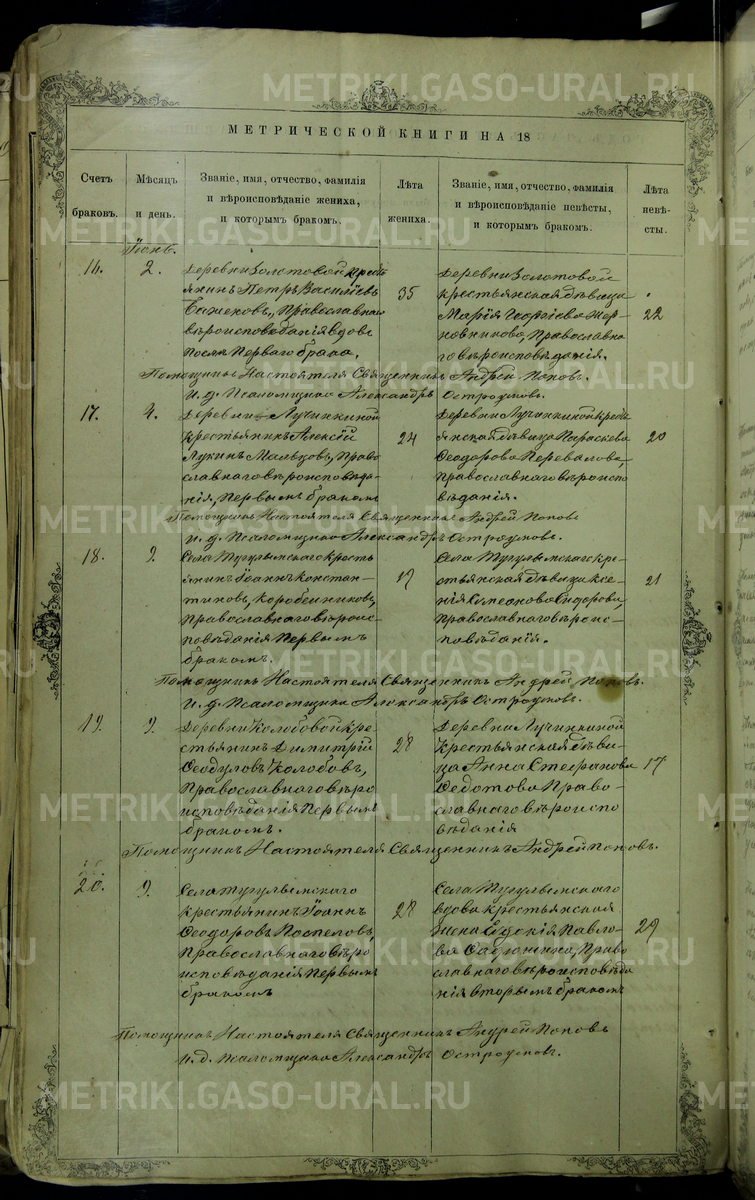 МЕТРИЧЕСКОЙ КНИГИ НА 18
Счетъ браковъ.
Мѣсяцъ и день.
Званіе, имя, отчество, фамилія и вѣроисповѣданіе жениха, и которымъ бракомъ.
Лѣта жениха.
Званіе, имя, отчество, фамилія и вѣроисповѣданіе невѣсты, и которымъ бракомъ.
Лѣта невѣсты.
Іюнь.
16.
2.
Деревни Золотовой крест
янинъ Петръ Василіевъ
Православнаго
вѣроисповѣданія вдовъ
после перваго брака.
35
Деревни Золотовой
крестьянская дѣвица
Марія Георгіева Чер
новникова, Православна
го вѣроисповѣданія.
22
Помощникъ Настоятеля Священникъ Андрей Поповъ.
и. д. Псаломщика Александръ Остроумовъ.
17.
4.
Деревни Лучинкиной
крестьянинъ Алексій
Лукинъ Мальцовъ, Право
славнаго вѣроисповѣда-
нія, первымъ бракомъ
24
Деревни Лучинкиной крест
янская дѣвица Параскева
Ѳеодорова Перевалова,
православнаго вѣроиспо
вѣданія.
20
Помощникъ Настоятеля Священникъ Андрей Поповъ
и. д. Псаломщика Александръ Остроумовъ.
18.
9.
Села Тугулымскаго кресть
янинъ Іоаннъ Констан-
тиновъ, Коробейниковъ,
Православнаго вѣроис-
повѣданія первымъ
бракомъ.
19
Села Тугулымскаго кре-
стьянская дѣвица Ксе-
нія Симеонова Сидорова,
православнаго вѣроис-
повѣданія.
21
Помощникъ Настоятеля Священникъ Андрей Поповъ.
и. д. Псаломщика Александръ Остроумовъ.
19.
9.
Деревни Колобовой кре-
стьянинъ Димитрій
Ѳеодуловъ Колобовъ,
Православнаго вѣро
исповѣданія первымъ
бракомъ.
28
Деревни Лучинкиной
крестьянская дѣви-
ца Анна Стефанова
Ѳедотова Право-
славнаго вѣроиспо
вѣданія
17
Помощникъ Настоятеля Священникъ Андрей Поповъ.
20.
9.
Села Тугулымскаго
крестьянинъ Іоаннъ
Ѳеодоровъ Поспеловъ,
Православнаго вѣро
исповѣданія первымъ
бракомъ
28
Села Тугулымскаго
вдова крестьянская
жена Евдокія Павло-
ва Право
славнаго вѣроисповѣда
нія вторымъ бракомъ
29
Помощникъ Настоятеля Священникъ Андрей Поповъ
и. д. Псаломщика Александръ Остроумовъ.
METRIKI.GASO-URAL.RU